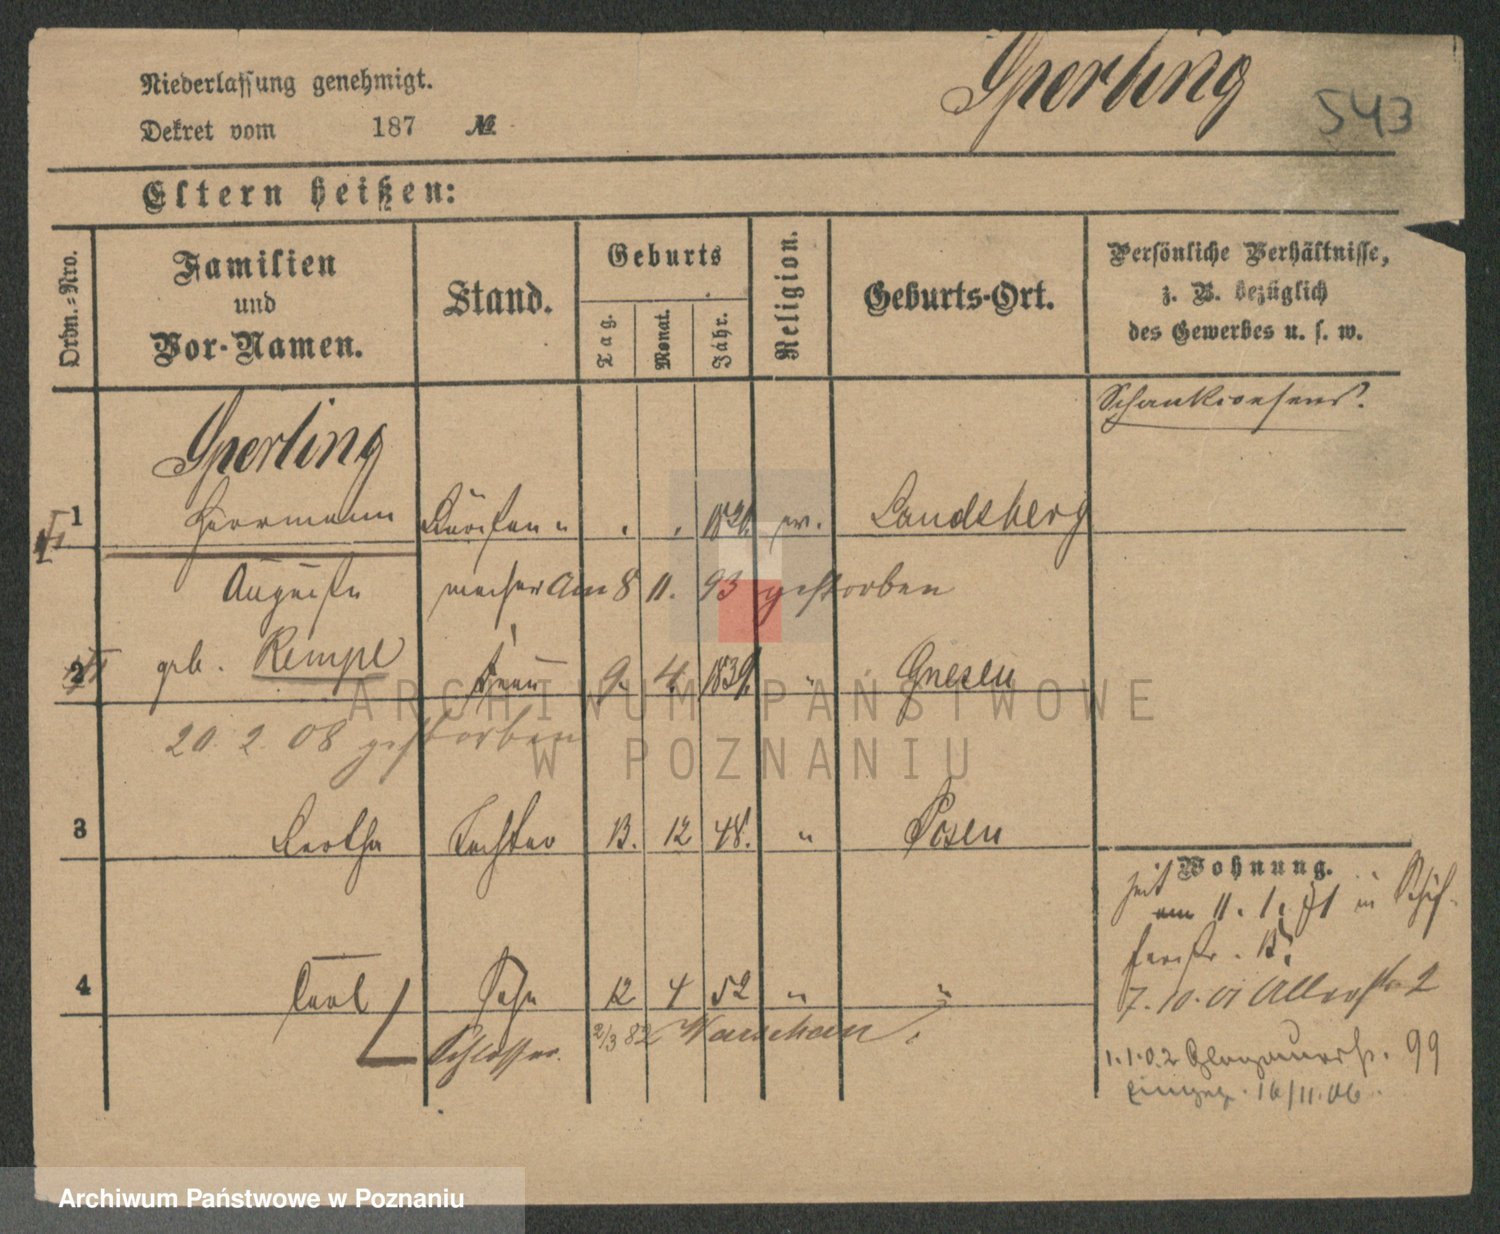 Niederlassung genehmigt.
Sperling
543
Dekret vom 187 №
Eltern heißen:
Ordn.-Nro.
Familien und Vor-Namen.
Stand.
Geburts
Tag.
Monat.
Jahr.
Religion.
Geburts-Ort.
Persönliche Verhältnisse,
z. B. bezüglich
des Gewerbes u. s. w.
Sperling
1 Herrmann 182 ev. Landsberg
Auguste macher am 8 11. 93 gestorben
2 geb. Rempe Frau 9. 4. 1839. " Gnesen
20. 2. 08 gestorben
3 Bertha Tochter 13. 12 48. " Posen
Wohnung.
am 11. 1. 71 in Schif-
ferstr.
4 Carl Sohn 12 4 52 " "
7. 10. 01 2
Schlosser. 2/3 82 Warschau.
1.1.02 Glogauerstr. 99
16/11.06
ARCHIWUM PAŃSTWOWE
W POZNANIU
Archiwum Państwowe w Poznaniu